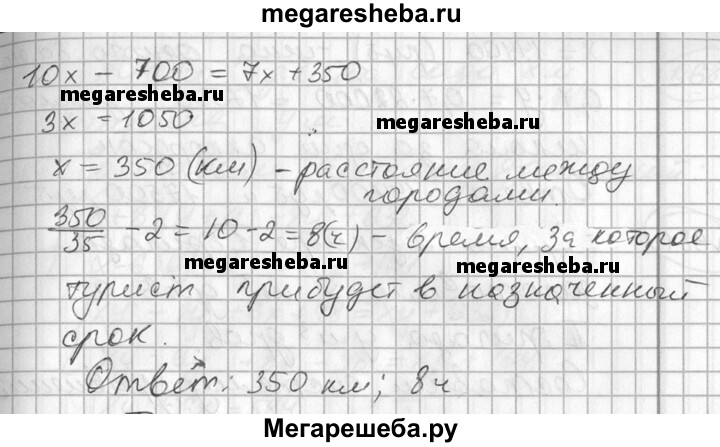 megaresheba.ru
10x - 700 = 7x + 350
megaresheba.ru
3x = 1050
megaresheba.ru
x = 350 (км) - расстояние между
городами.
350/35 - 2 = 10 - 2 = 8(ч) - время, за которое
megaresheba.ru
megaresheba.ru
турист прибудет в назначенный
срок.
Ответ: 350 км; 8ч
Мегарешеба.ру